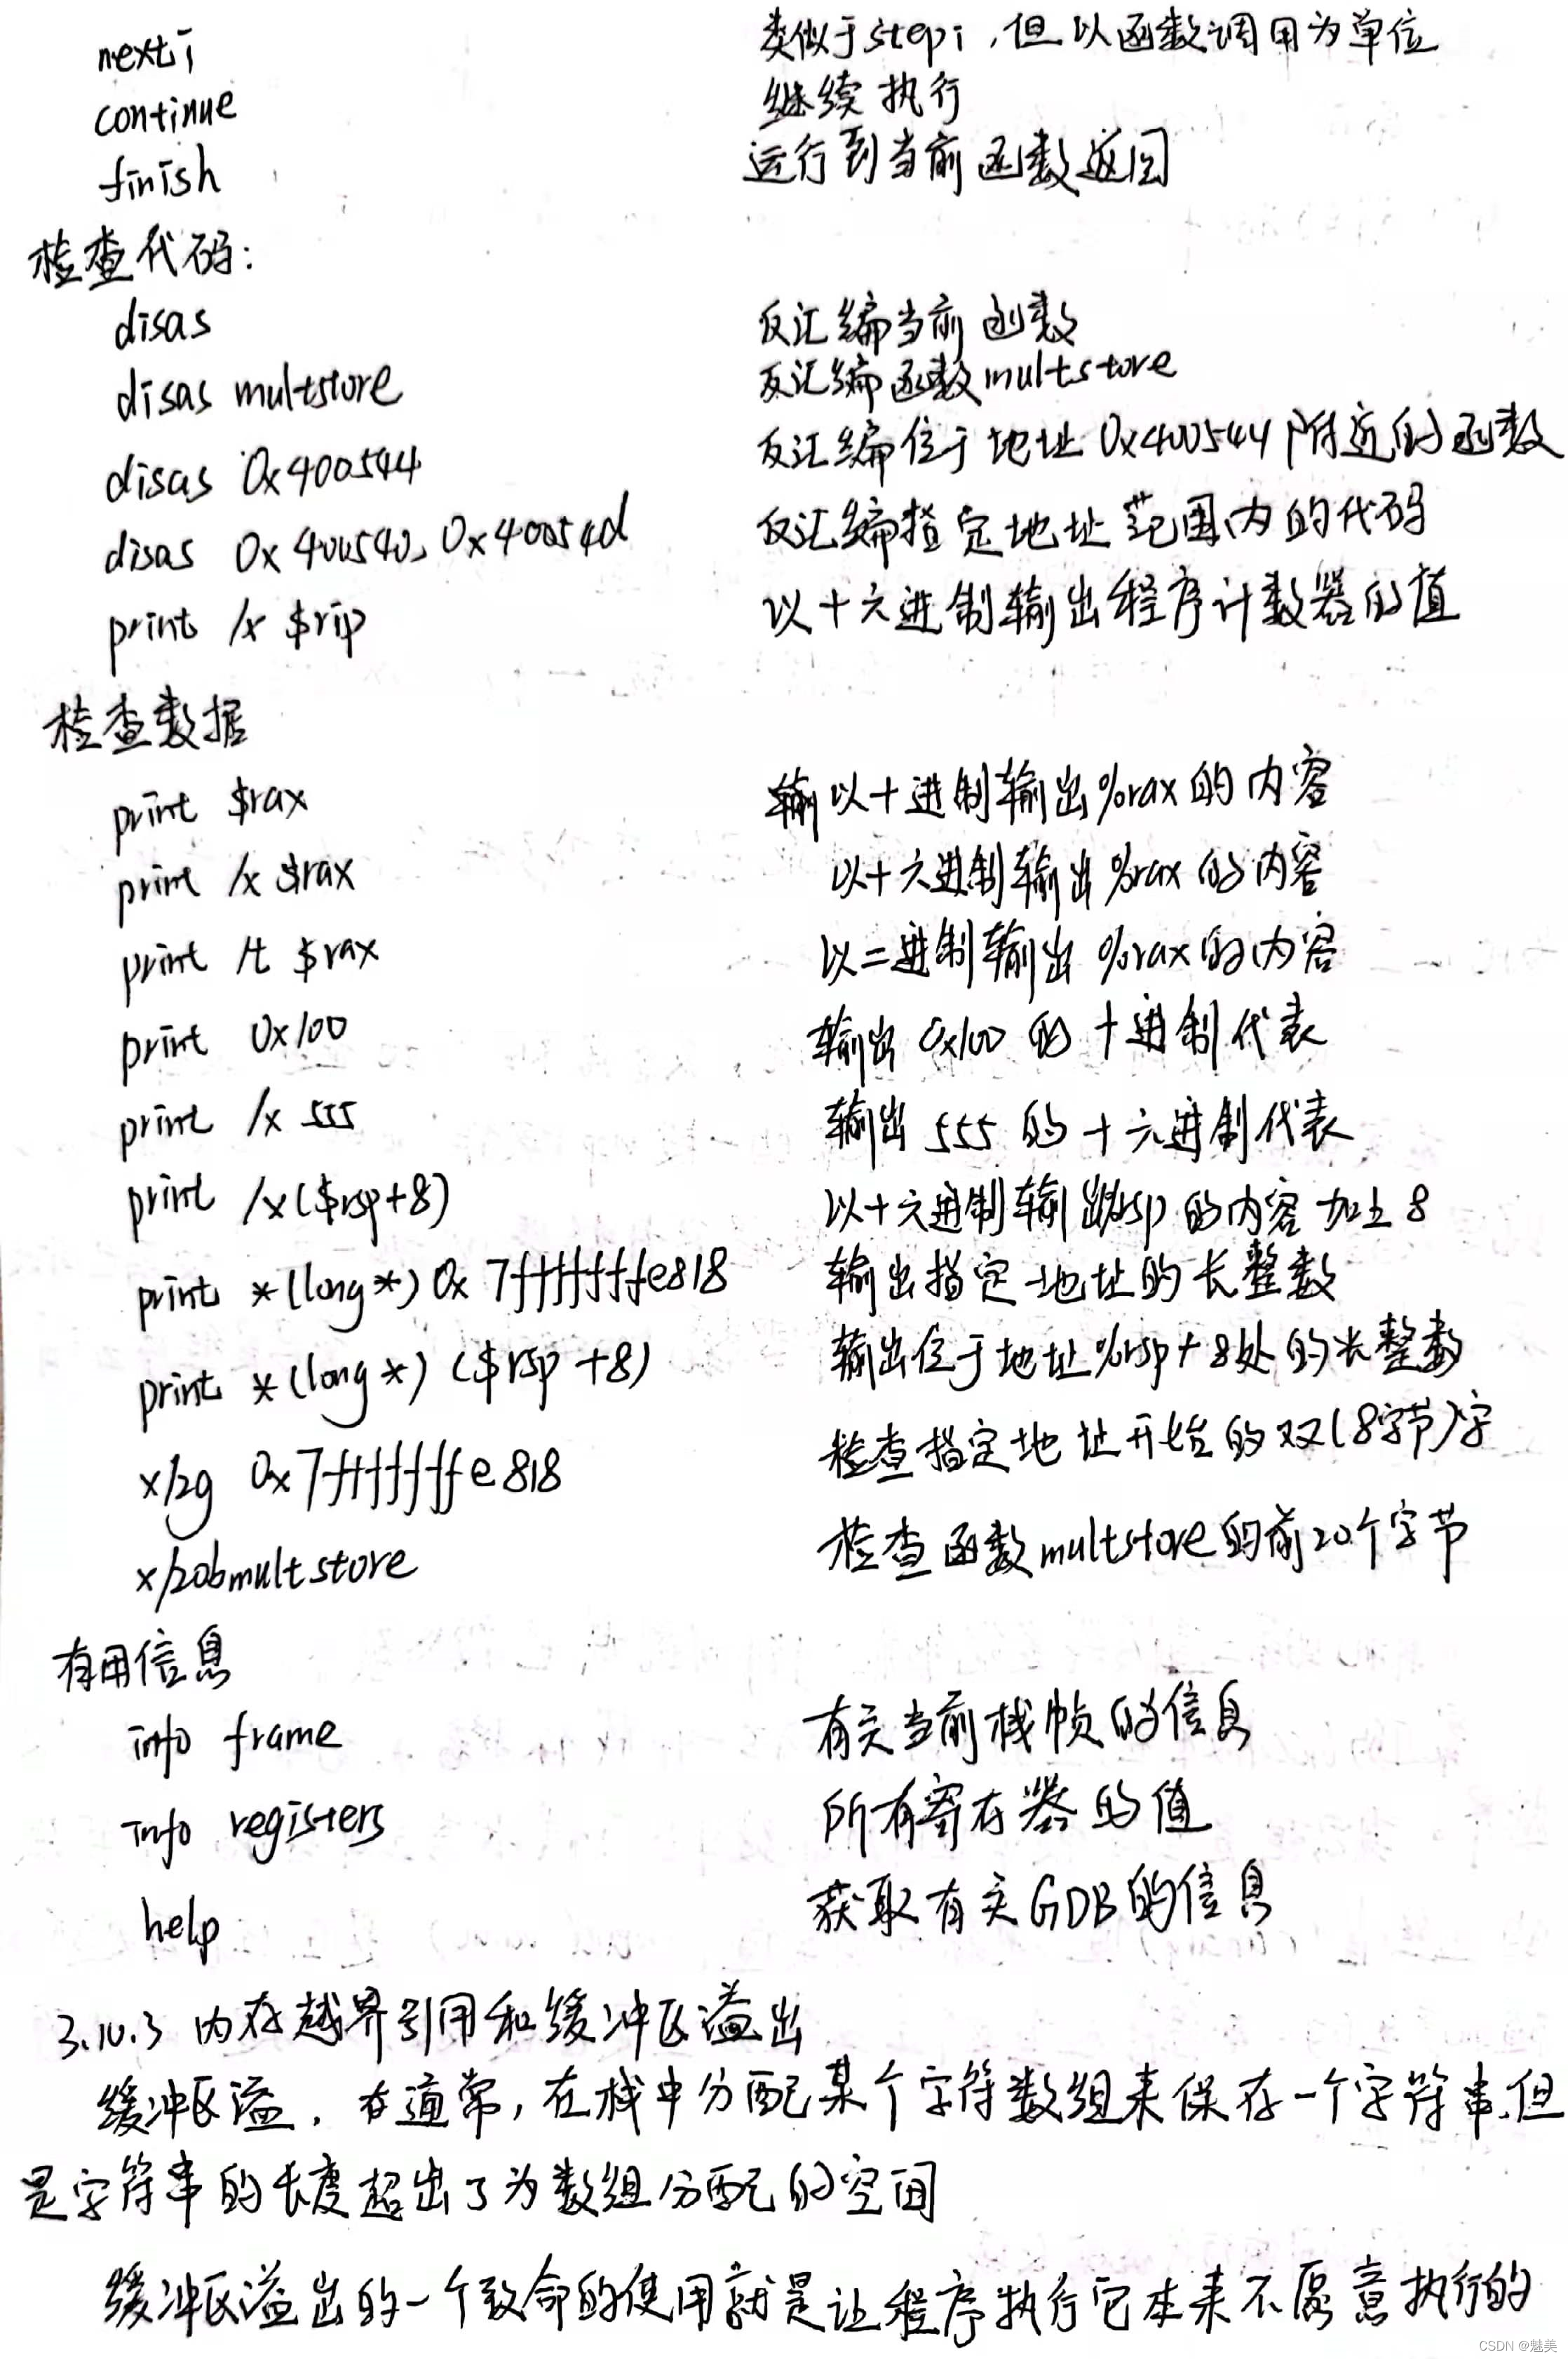 nexti 类似于stepi，但以函数调用为单位
continue 继续执行
finish 运行到当前函数返回
检查代码：
disas 反汇编当前函数
disas multstore 反汇编函数multstore
disas 0x400544 反汇编位于地址0x400544附近的函数
disas 0x400540, 0x40054d 反汇编指定地址范围内的代码
print /x $rip 以十六进制输出程序计数器的值
检查数据
print $rax 输以十进制输出%rax的内容
print /x $rax 以十六进制输出%rax的内容
print /t $rax 以二进制输出%rax的内容
print 0x100 输出0x100的十进制代表
print /x 555 输出555的十六进制代表
print /x($rsp+8) 以十六进制输出%rsp的内容加上8
print *(long*) 0x7fffffffe818 输出指定地址的长整数
print *(long*) ($rsp+8) 输出位于地址%rsp+8处的长整数
x/2g 0x7fffffffe818 检查指定地址开始的双(8字节)字
x/20bmultstore 检查函数multstore的前20个字节
有用信息
info frame 有关当前栈帧的信息
info registers 所有寄存器的值
help 获取有关GDB的信息
3.10.3 内存越界引用和缓冲区溢出
缓冲区溢，在通常，在栈中分配某个字符数组来保存一个字符串，但
是字符串的长度超出了为数组分配的空间
缓冲区溢出的一个致命的使用就是让程序执行它本来不愿意执行的
CSDN @魅美